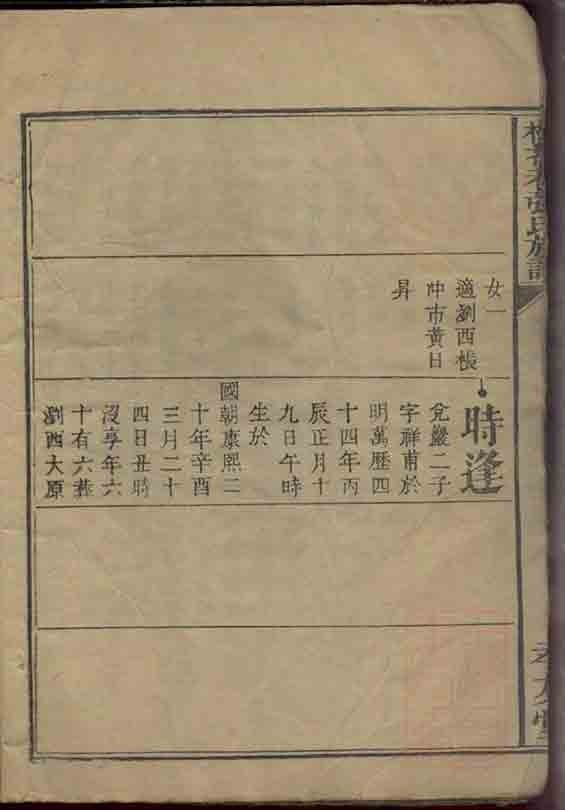 氏族
女一
適瀏西
冲市黃日
昇
時逢
兌巖二子
字祥甫於
明萬歷四
十四年丙
辰正月十
九日午時
生於
國朝康熙二
十年辛酉
三月二十
四日丑時
沒享年六
十有六葬
瀏西大原